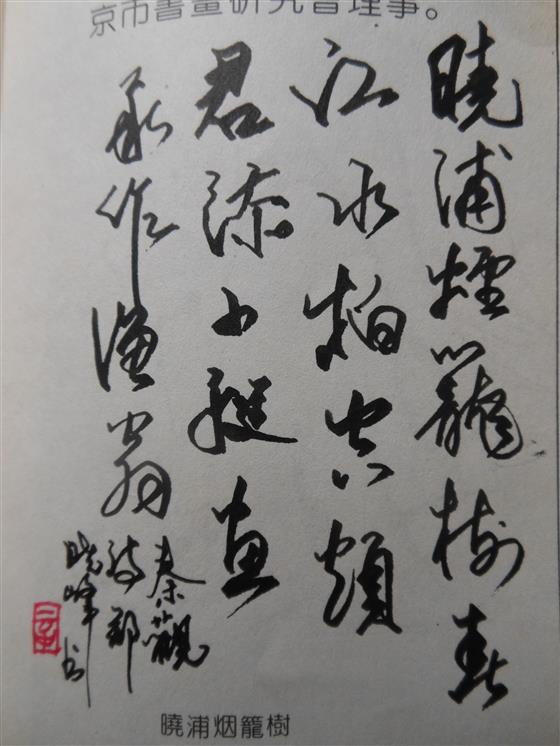 京市書畫研究會理事。
曉浦煙籠樹春
江水拍空煩
君添小艇畫
我作漁翁
秦觀
詩
曉峰書
曉浦烟籠樹